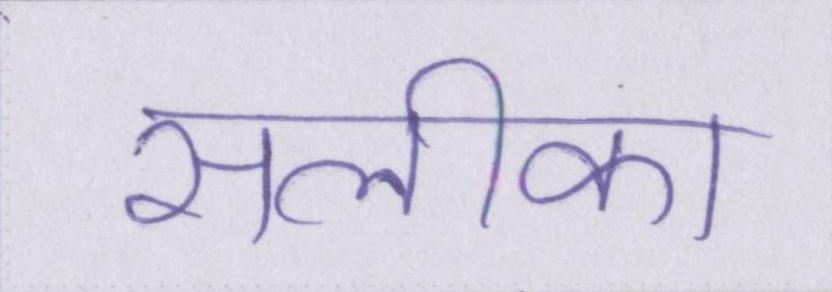 सलीका